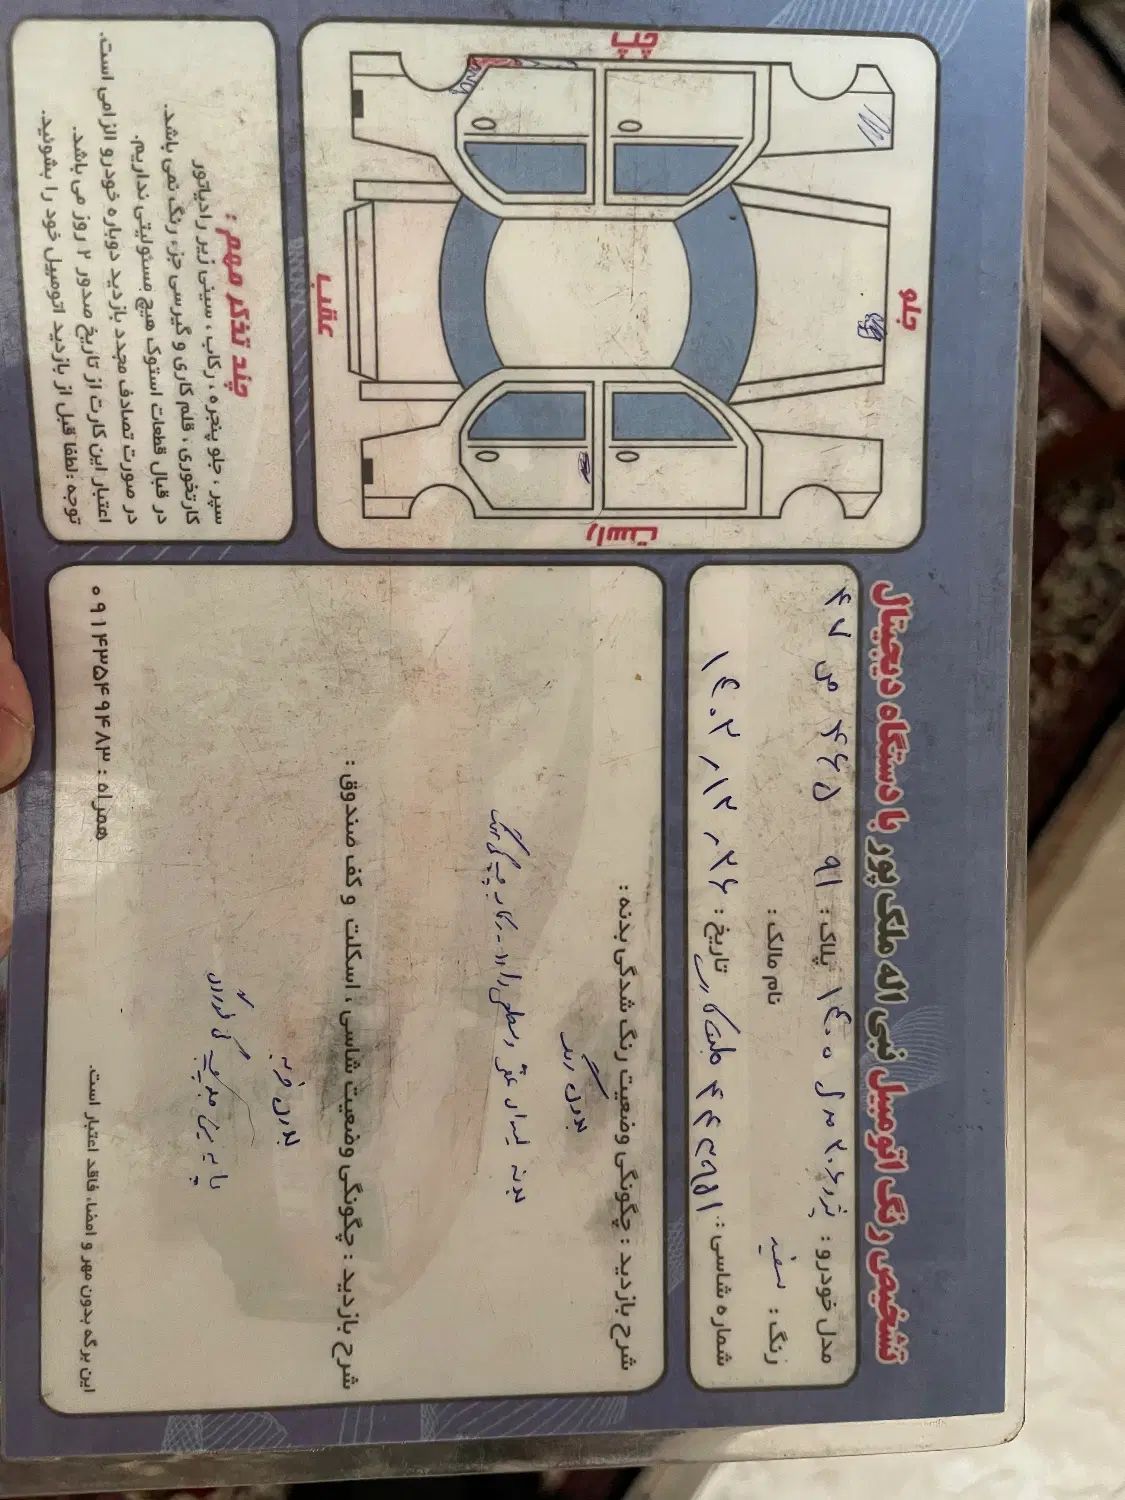 تشخیص رنگ اتومبیل نبی اله ملک پور با دستگاه دیجیتال
مدل خودرو: پژو ۲۰۶ مدل ۱۴۰۰ پلاک: ۹۱ ۴۶۵ ص ۴۷
رنگ: سفید نام مالک:
شماره شاسی: تاریخ: ۱۴۰۲/۱۲/۲۶
شرح بازدید: چگونگی وضعیت رنگ شدگی بدنه:
بدون رنگ
شرح بازدید: چگونگی وضعیت شاسی، اسکلت و کف صندوق:
بدون ضربه
این برگه بدون مهر و امضاء، فاقد اعتبار است. همراه: ۰۹۱۴۳۵۴۹۴۸۳
جلو
چپ
راست
عقب
چند تذکر مهم:
سپر، جلو پنجره، رکاب، سینی زیر رادیاتور
کارتخوری، قلم کاری و گیرسی جزء رنگ نمی باشد.
در قبال قطعات استوک هیچ مسئولیتی نداریم.
در صورت تصادف مجدد بازدید دوباره خودرو الزامی است.
اعتبار این کارت از تاریخ صدور ۲ روز می باشد.
توجه: لطفا قبل از بازدید اتومبیل خود را بشوئید.